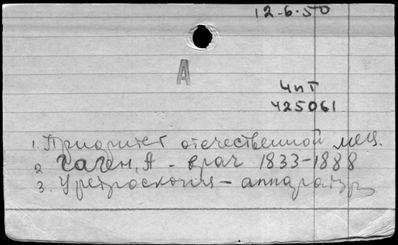 12-6-50
А
ЧиТ
425061
1. Приоритет отечественной мец.
2. Гаген, А - врач 1833-1888
3. Уретроскопия - аппаратура